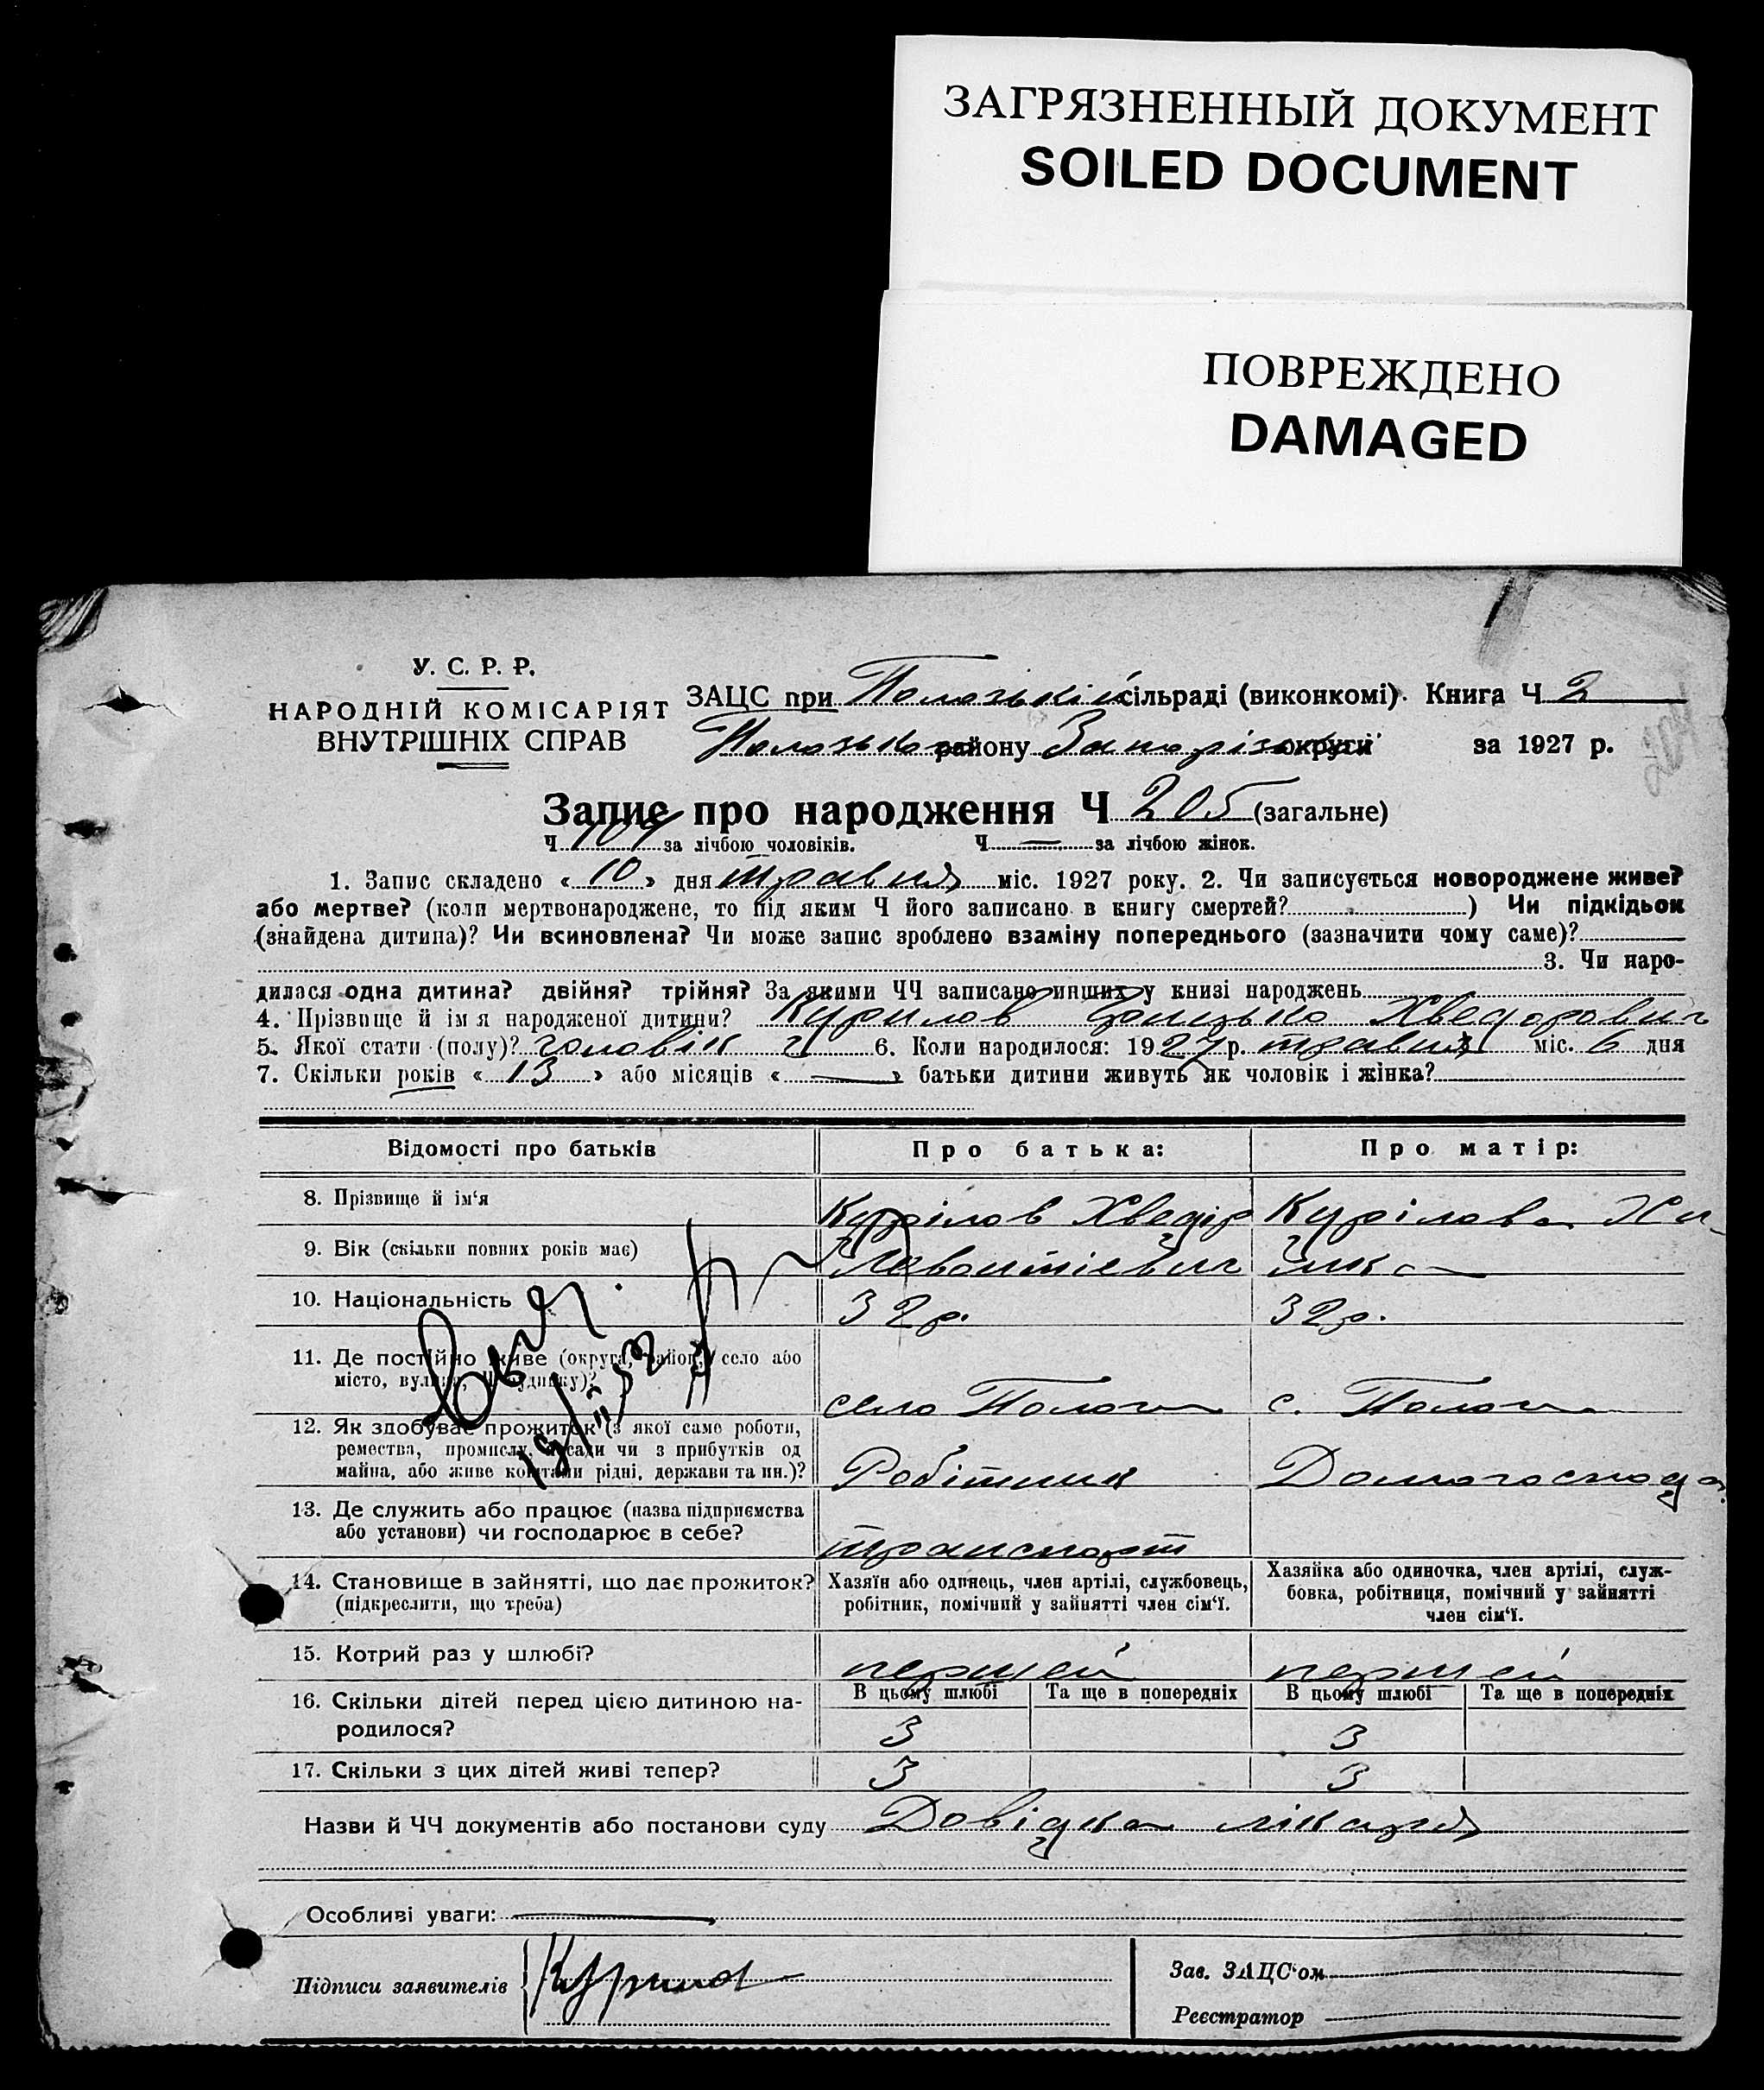 ЗАГРЯЗНЕННЫЙ ДОКУМЕНТ
SOILED DOCUMENT
ПОВРЕЖДЕНО
DAMAGED
У. С. Р. Р.
НАРОДНІЙ КОМІСАРІЯТ
ВНУТРІШНІХ СПРАВ
ЗАЦС при Пологській сільраді (виконкомі). Книга Ч 2
району Запорізької округи за 1927 р.
Запис про народження Ч 205 (загальне)
Ч 104 за лічбою чоловіків. Ч — за лічбою жінок.
1. Запис складено « 10 » дня травня міс. 1927 року. 2. Чи записується новороджене живе?
або мертве? (коли мертвонароджене, то під яким Ч його записано в книгу смертей?) Чи підкідьок
(знайдена дитина)? Чи всиновлена? Чи може запис зроблено взаміну попереднього (зазначити чому саме)?
3. Чи наро-
дилася одна дитина? двійня? трійня? За якими ЧЧ записано инших у книзі народжень
4. Прізвище й ім'я народженої дитини? Курилов Хведорович
5. Якої стати (полу)? чоловік 6. Коли народилося: 1927 р. травня міс. 6 дня
7. Скільки років « 13 » або місяців « — » батьки дитини живуть як чоловік і жінка?
Відомості про батьків Про батька: Про матір:
8. Прізвище й ім'я Курілов Хведір Курілова
9. Вік (скільки повних років має) Левонтіевич
10. Національність 32 р. 32 р.
11. Де постійно живе (округа, район, село або
місто, вулиця, Ч будинку)?
село Пологи с. Пологи
12. Як здобуває прожиток (з якої саме роботи,
ремества, промислу, посади чи з прибутків од
майна, або живе коштами рідні, держави та ин.)?
Робітник Домогосподар.
13. Де служить або працює (назва підприємства
або установи) чи господарює в себе?
транспорт
14. Становище в зайнятті, що дає прожиток?
(підкреслити, що треба)
Хазяїн або одинець, член артілі, службовець,
робітник, помічний у зайнятті член сім'ї.
Хазяйка або одиночка, член артілі, служ-
бовка, робітниця, помічний у зайнятті
член сім'ї.
15. Котрий раз у шлюбі? першей першей
16. Скільки дітей перед цією дитиною на-
родилося?
В цьому шлюбі Та ще в попередніх В цьому шлюбі Та ще в попередніх
3 3
17. Скільки з цих дітей живі тепер? 3 3
Назви й ЧЧ документів або постанови суду Довідка лікаря
Особливі уваги: —
Підписи заявителів Курилов
Зав. ЗАЦС'ом
Реєстратор